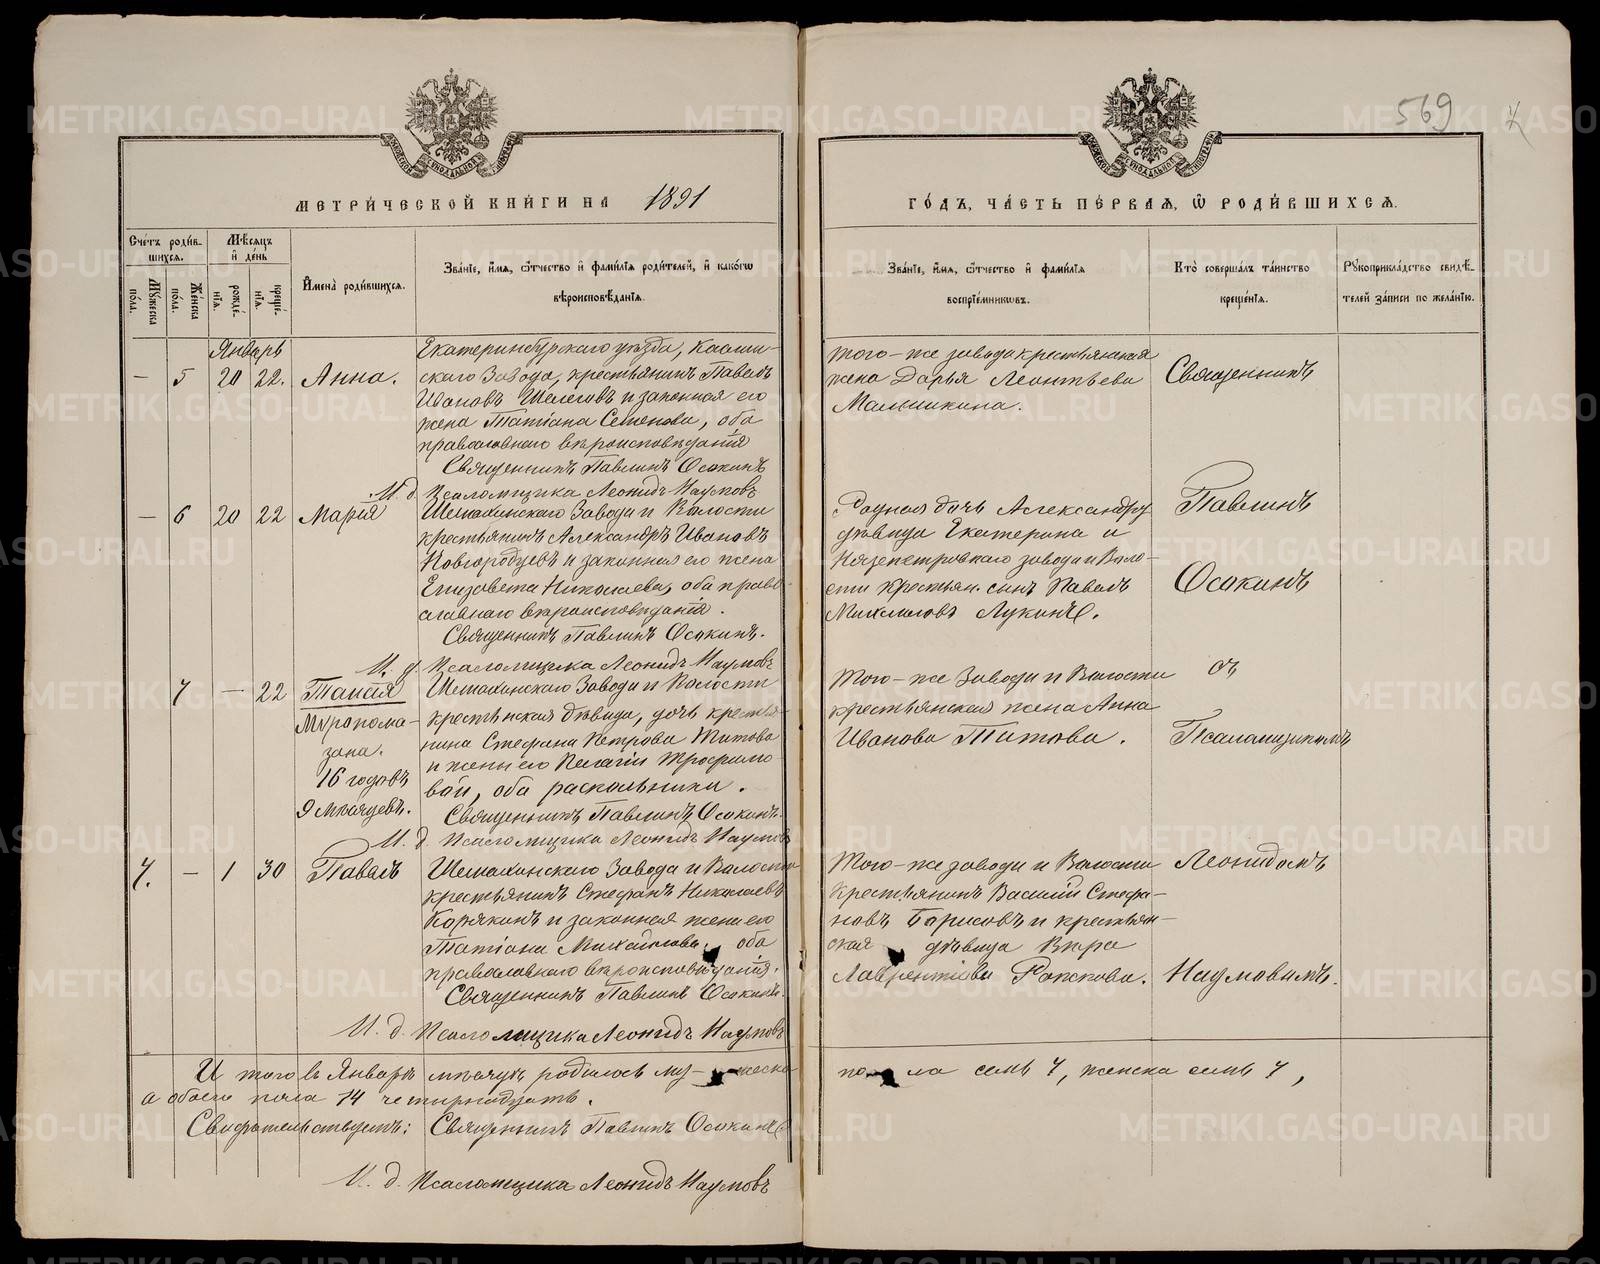 569
МЕТРИЧЕСКОЙ КНИГИ НА 1891
ГОДЪ, ЧАСТЬ ПЕРВАЯ, Ѡ РОДИВШИХСЯ.
Счетъ родив-
шихся.
Мѣсяцъ
и день
Мужеска
пола.
Женска
пола.
рожде-
нія.
креще-
нія.
Имена родившихся.
Званіе, имя, отчество и фамилія родителей, и какогѡ
вѣроисповѣданія.
Званіе, имя, отчество и фамилія
воспріемниковъ.
Кто совершалъ таинство
крещенія.
Рукоприкладство свидѣ-
телей записи по желанію.
Январь
— 5 20 22. Анна.
Екатеринбургскаго уѣзда, Каслин-
скаго Завода, крестьянинъ Павелъ
Ивановъ Шелеговъ и законная его
жена Татіана Семенова, оба
православнаго вѣроисповѣданія
Священникъ Павлинъ Осокинъ
И. д. Псаломщика Леонидъ Наумовъ
того-же завода крестьянская
жена Дарья Леонтьева
Малышкина.
Священникъ
— 6 20 22 Марія
Шемахинскаго Завода и Волости
крестьянинъ Александръ Ивановъ
Новгородцевъ и законная его жена
Елизавета Николаева, оба право-
славнаго вѣроисповѣданія.
Священникъ Павлинъ Осокинъ.
И. д. Псаломщика Леонидъ Наумовъ
Родная дочь Александру
дѣвица Екатерина и
Нязепетровскаго завода и Воло-
сти крестьян. сынъ Павелъ
Михайловъ Лукинъ.
Павлинъ
Осокинъ
7 — 22 Таисія
Муропома-
зана.
16 годовъ
9 мѣсяцевъ.
Шемахинскаго Завода и Волости
крестьянская дѣвица, дочь крестья-
нина Стефана Петрова Титова
и жены его Пелагіи Трофимо-
вой, оба раскольники.
Священникъ Павлинъ Осокинъ.
И. д. Псаломщика Леонидъ Наумовъ
Того-же Завода и Волости
крестьянская жена Анна
Иванова Титова.
съ
Псаломщикомъ
7. — 1 30 Павелъ
Шемахинскаго Завода и Волости
крестьянинъ Стефанъ Николаевъ
Корякинъ и законная жена его
Татіана Михайлова, оба
православнаго вѣроисповѣданія.
Священникъ Павлинъ Осокинъ.
И. д. Псаломщика Леонидъ Наумовъ
Того-же завода и Волости
крестьянинъ Василій Стефа-
новъ Борисовъ и крестьян-
ская дѣвица Вѣра
Лаврентіева
Леонидомъ
Наумовымъ.
И того въ Январѣ мѣсяцѣ родилось му-жеска
пола семь 7, женска семь 7,
а обоего пола 14 четырнадцать.
Свидѣтельствуемъ: Священникъ Павлинъ Осокинъ
И. д. Псаломщика Леонидъ Наумовъ
METRIKI.GASO-URAL.RU